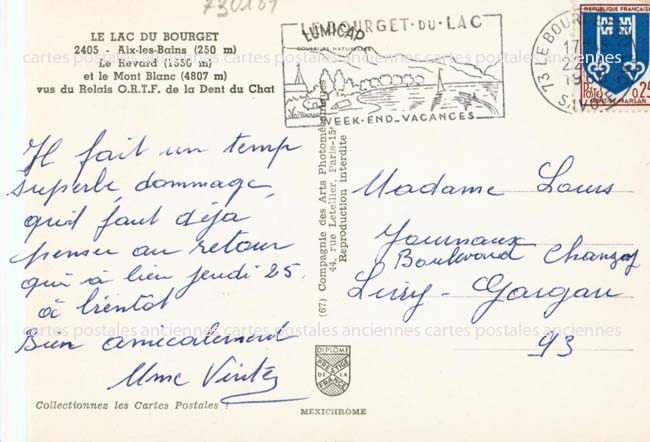 730181
LE LAC DU BOURGET
2405 - Aix-les-Bains (250 m)
Le Revard (1550 m)
et le Mont Blanc (4807 m)
vus du Relais O.R.T.F. de la Dent du Chat
LE BOURGET-DU-LAC
LUMICAP
WEEK-END-VACANCES
73 LE BOURGET
SAVOIE
REPUBLIQUE FRANÇAISE
POSTES
0,25
MONT-DE-MARSAN
Il fait un temps
superbe, dommage,
qu'il faut déja
penser au retour
qui à lieu jeudi 25.
à bientôt
Bien amicalement
Mme
Collectionnez les Cartes Postales !
(67) Compagnie des Arts Photomécaniques
44, rue Letellier, Paris-15e
Reproduction interdite
DIPLOME
PRESTIGE
DE LA
FRANCE
MEXICHROME
Madame Louis
Journaux
Boulevard Chanzy
Livry-Gargan
93
cartes postales anciennes cartes postales anciennes cartes postales anciennes cartes postales